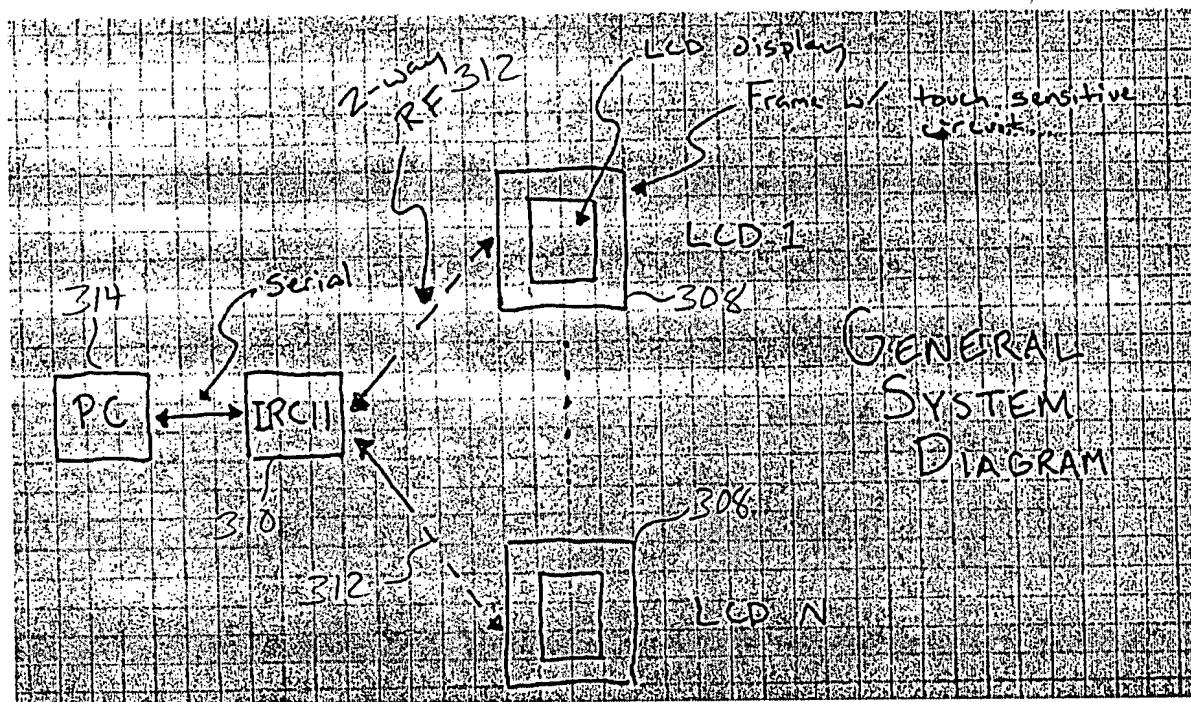 2-way
RF 312
LCD display
Frame w/ touch sensitive
LCD 1
308
314
Serial
PC
IRC11
310
312
GENERAL
SYSTEM
DIAGRAM
308
LCD N